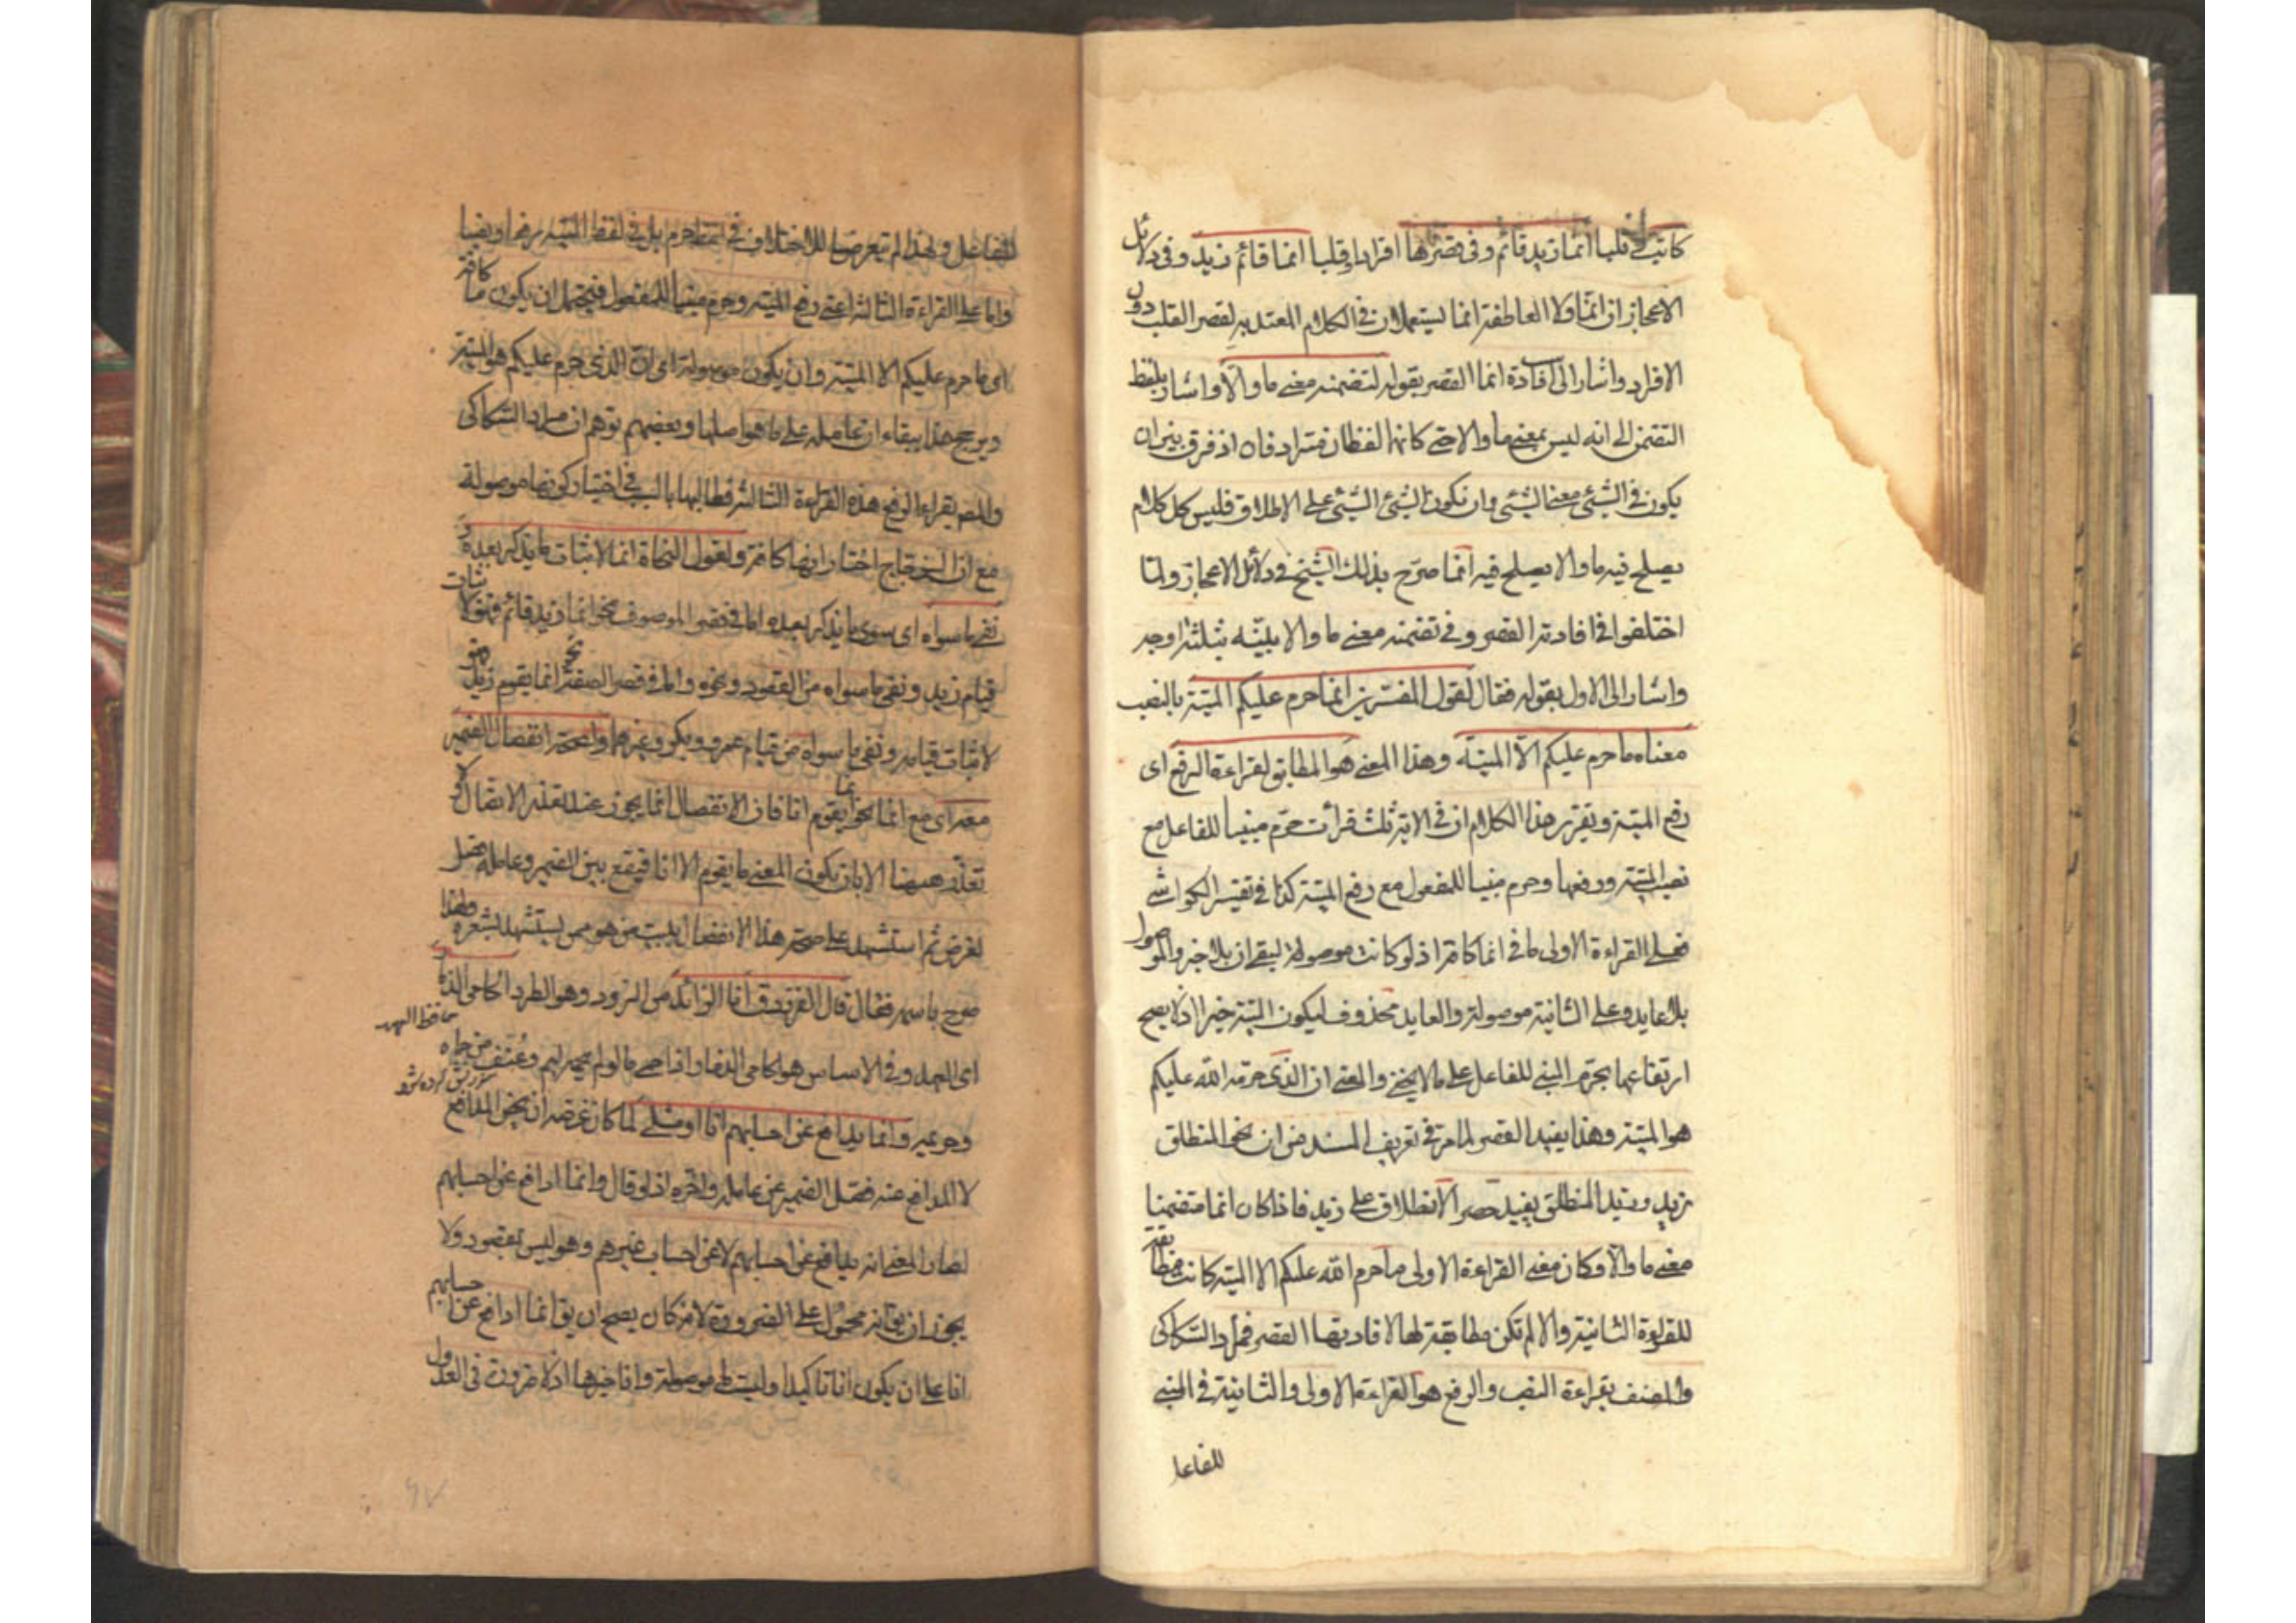 كاتب وقلبا انما زيد قائم وفى قصرها افرادا وقلبا انما قائم زيد وفى دلائل
الاعجاز ان انما ولا العاطفة انما يستعملان فى الكلام المعتد به لقصر القلب دون
الافراد واشار الى سبب افادة انما القصر بقوله لتضمنه معنى ما والا واشار بلفظ
التضمن الى انه ليس بمعنى ما والا حتى كانهما لفظان مترادفان اذ فرق بين ان
يكون فى الشئ معنى الشئ وان يكون الشئ الشئ على الاطلاق فليس كل كلام
يصلح فيه ما والا يصلح فيه انما صرح بذلك الشيخ فى دلائل الاعجاز ولما
اختلفوا فى افادته القصر وفى تضمنه معنى ما والا بيّنه بثلثة اوجه
واشار الى الاول بقوله فقال لقول المفسرين انما حرم عليكم الميتة بالنصب
معناه ما حرم عليكم الا الميتة وهذا المعنى هو المطابق لقراءة الرفع اى
رفع الميتة وتقرير هذا الكلام ان فى الاية ثلث قرأت حرّم مبنيا للفاعل مع
نصب الميتة ورفعها وحرم مبنيا للمفعول مع رفع الميتة كذا فى تفسير الكواشى
فعلى القراءة الاولى ما فى انما كافة اذ لو كانت موصولة لبقى ان بلا خبر والموصول
بلا عايد وعلى الثانية موصولة والعايد محذوف ليكون الميتة خبرا اذ لا يصح
ارتفاعها بحرم المبنى للفاعل على ما لا يخفى والمعنى ان الذى حرمه الله عليكم
هو الميتة وهذا يفيد القصر لما مر فى تعريف المسند من ان نحو المنطلق
زيد وزيد المنطلق يفيد حصر الانطلاق على زيد فاذا كان انما متضمنا
معنى ما والا وكان معنى القراءة الاولى ما حرم الله عليكم الا الميتة كانت مطابقة
للقراءة الثانية والا لم تكن مطابقة لها لافادتها القصر فمراد السكاكى
والمصنف بقراءة النصب والرفع هو القراءة الاولى والثانية فى المبنى
للفاعل
للفاعل ولهذا لم يتعرضا للاختلاف فى لفظ حرم بل فى لفظ الميتة رفعا ونصبا
واما على القراءة الثالثة اعنى رفع الميتة وحرم مبنيا للمفعول فيحتمل ان يكون ما كافة
اى ما حرم عليكم الا الميتة وان يكون موصولة اى ان الذى حرم عليكم هو الميتة
ويرجح هذا ببقاء ان عاملة على ما هو اصلها وبعضهم توهم ان مراد السكاكى
والمص بقراءة الرفع هذه القراءة الثالثة فطالبها بالسبب فى اختيار كونها موصولة
مع ان الزجاج اختار انها كافة ولقول النحاة انما لاثبات ما يذكر بعده و
نفى ما سواه اى سوى ما يذكر بعده اما فى قصر الموصوف نحو انما زيد قائم فهو لاثبات
قيام زيد ونفى ما سواه من القعود ونحوه واما فى قصر الصفة نحو انما يقوم زيد فهو
لاثبات قيامه ونفى ما سواه من قيام عمرو وبكر وغيرهما ولصحة انفصال الضمير
معه اى مع انما نحو انما يقوم انا فان الانفصال انما يجوز عند تعذر الاتصال ولا
تعذر ههنا الا بان يكون المعنى ما يقوم الا انا فيقع بين الضمير وعامله فصل
لغرض ثم استشهد على صحة هذا الانفصال ببيت من هو ممن يستشهد بشعره ولهذا
صرح باسمه فقال قال الفرزدق انا الزائد من الزود وهو الطرد الحامى الذمار
حافظ العهد
اى العهد وفى الاساس هو الحامى الذمار اذا حمى ما لو لم يحمه ليم وعنف من حماه
وحريمه وانما يدافع عن احسابهم انا او مثلى لما كان غرضه ان يخص المدافع
لا المدافع عنه فصل الضمير عن عامله واخره اذ لو قال وانما ادافع عن احسابهم
لصار المعنى انه يدافع عن احسابهم لا عن احساب غيرهم وهو ليس بمقصود ولا
يجوز ان يق انه محمول على الضرورة لانه كان يصح ان يق انما ادافع عن احسابهم
انا على ان يكون انا تاكيدا وليست ما موصولة وانا خبرها اذ لا ضرورة فى العدول